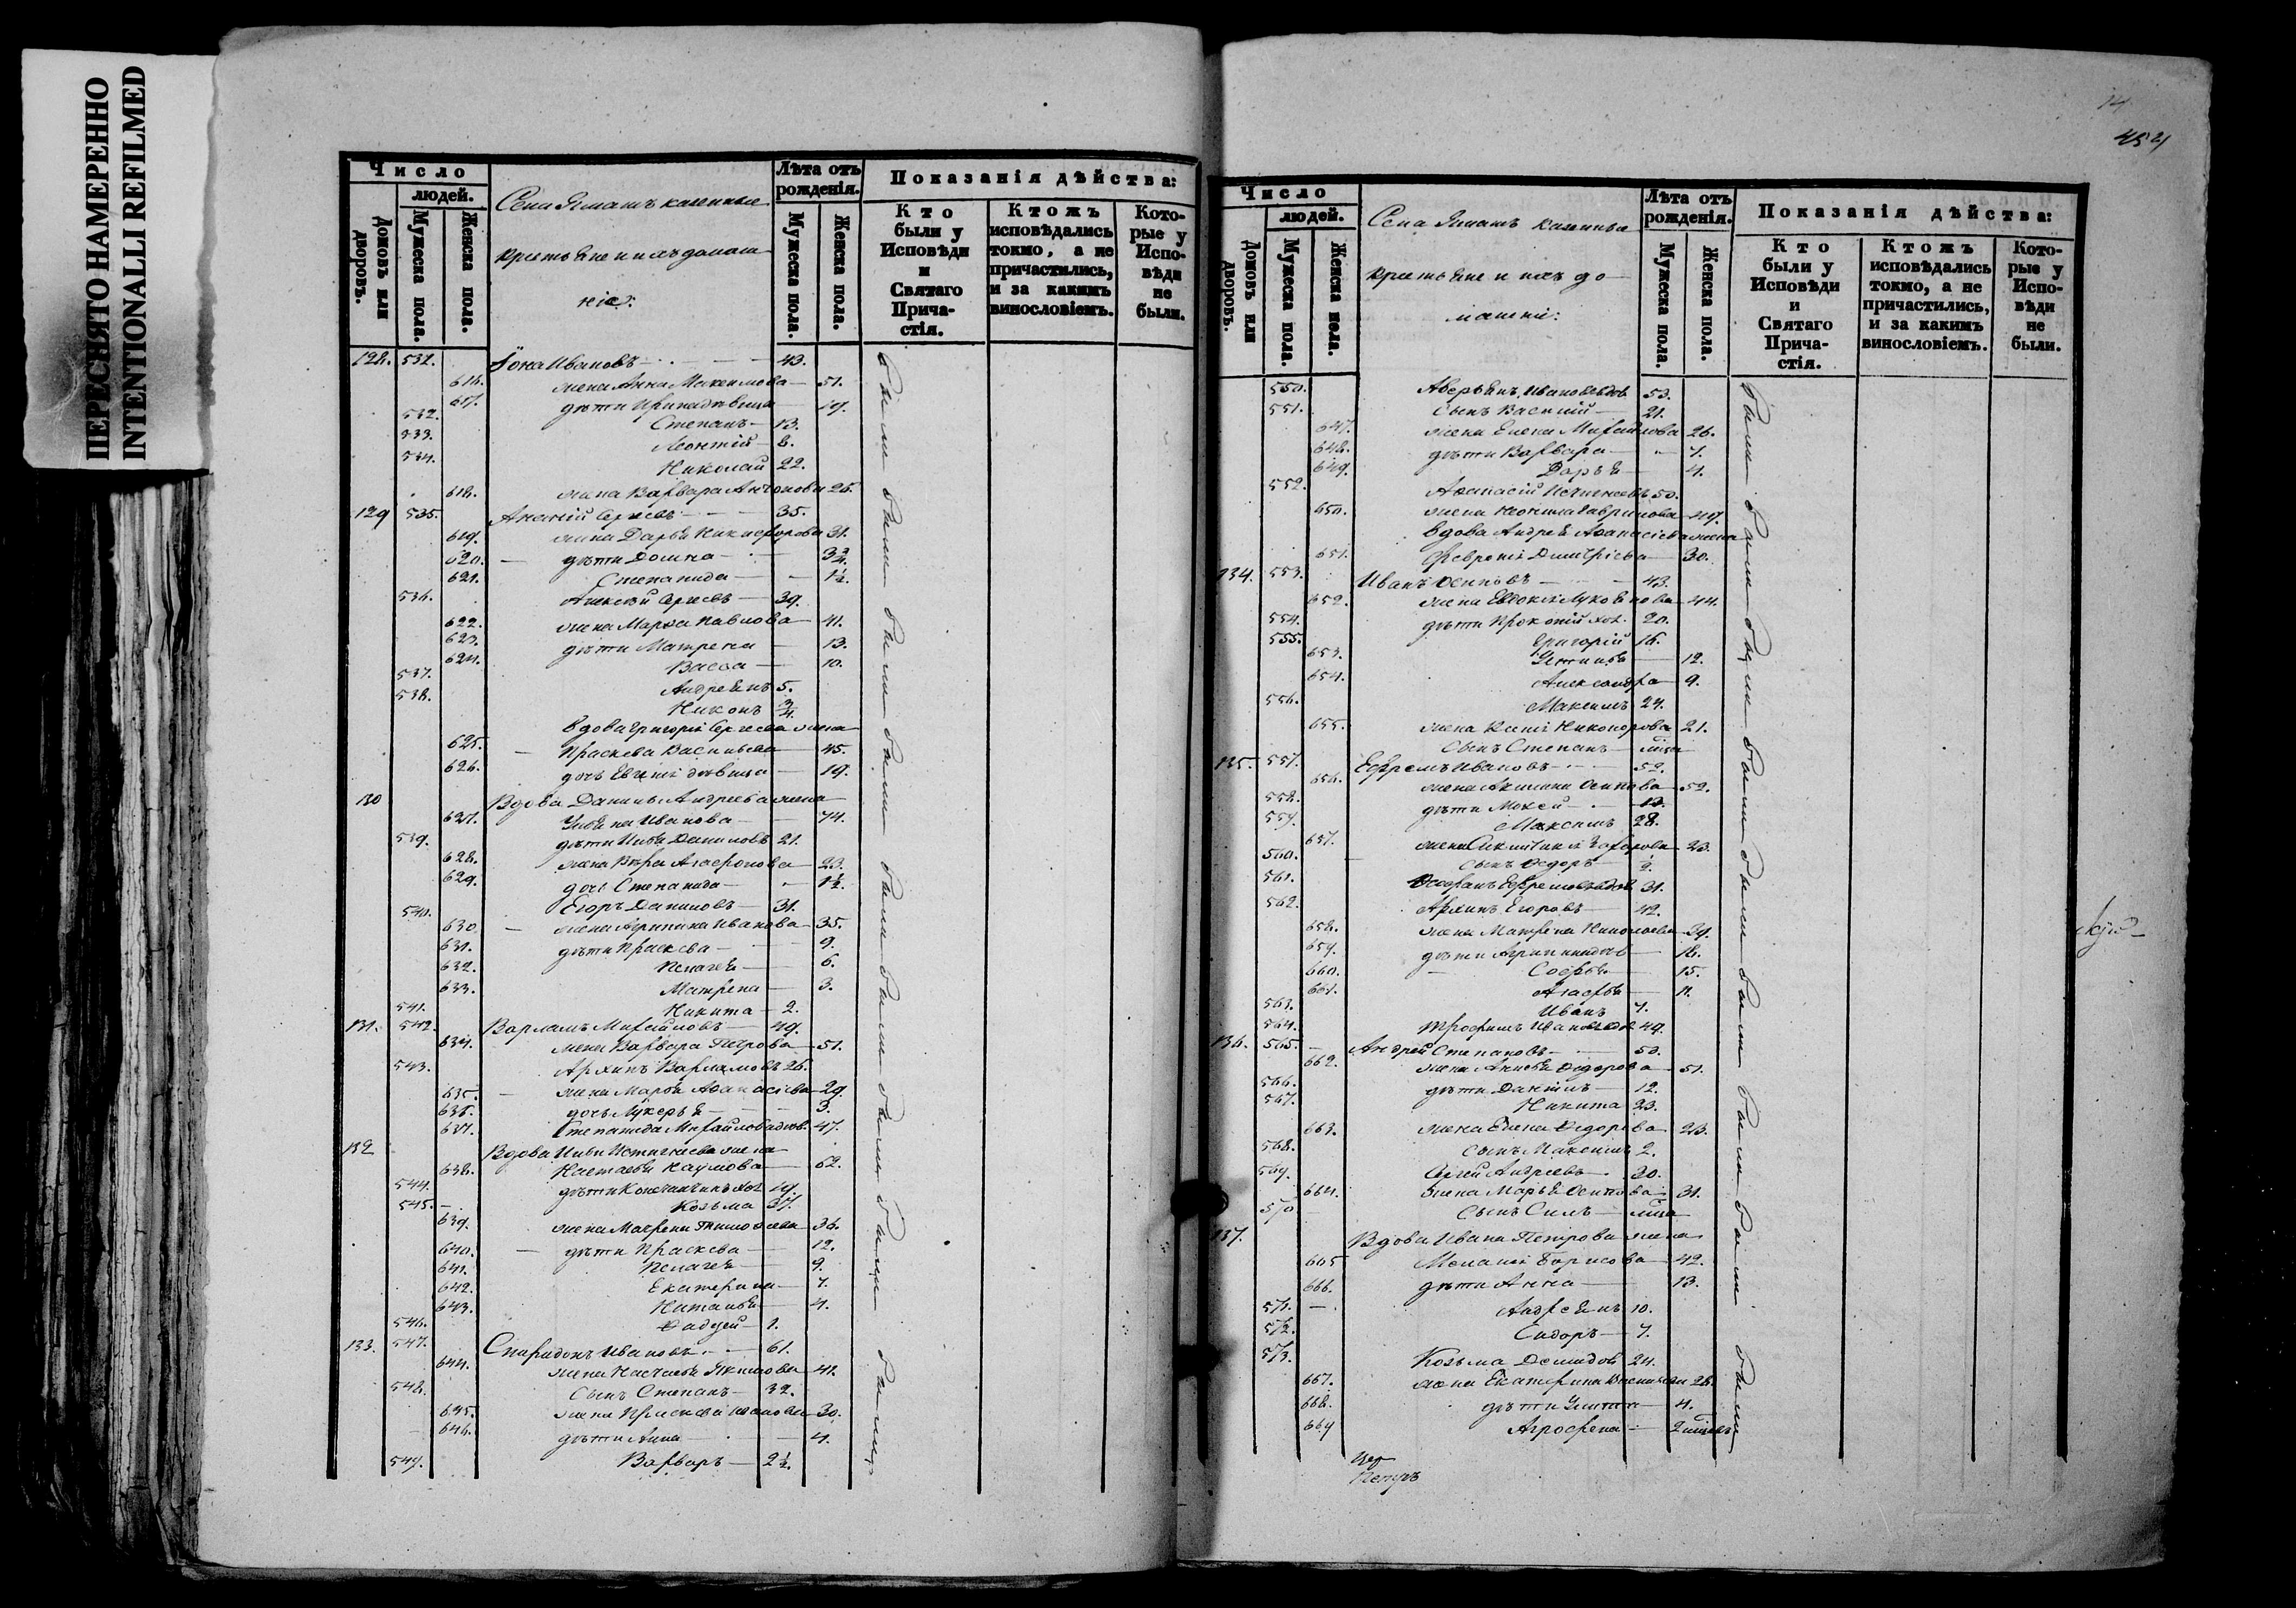 ПЕРЕСНЯТО НАМЕРЕННО
INTENTIONALLI REFILMED
Число
людей.
Домовъ или дворовъ.
Мужеска пола.
Женска пола.
Села казенные
крестьяне и ихъ домаш
ніе:
Лѣта отъ рожденія.
Мужеска пола.
Женска пола.
Показанія дѣйства:
Кто были у Исповѣди и Святаго Прича-стія.
Ктожъ исповѣдались токмо, а не причастились, и за какимъ винословіемъ.
Кото-рые у Испо-вѣди не были.
128. 531. Іона Ивановъ 43.
616. жена Анна Максимова 51.
617. дѣти 19.
532. Степанъ 13.
533. Леонтій 8.
534. Николай 22.
618. жена Варвара Антонова 25.
129 535. Ананій Сергѣевъ 35.
619. жена Дарья Никифорова 31.
620. дѣти Домна 3 3/4.
621. Степанида 1 1/2.
536. Алексѣй Сергѣевъ 39.
622. жена Марѳа Павлова 41.
623. дѣти Матрена 13.
624. Васса 10.
537. Андреянъ 5.
538. Никонъ 3/4.
вдова Григорія Сергѣева жена
625. Праскева Васильева 45.
626. дочь дѣвица 19.
130 Вдова Данилы Андреева жена
627. Ульяна Иванова 74.
539. дѣти Даниловъ 21.
628. жена Вѣра Агафонова 23.
629. дочь Степанида 1 1/2.
540. Егоръ Даниловъ 31.
630 жена Агрипина Иванова 35.
631. дѣти Праскева 9.
632. Пелагея 6.
633. Матрена 3.
541. Никита 2.
131. 542. Варламъ Михайловъ 49.
634. жена Варвара Петрова 51.
543. Архипъ Варламовъ 26.
635. жена Марья Аѳанасіева 29.
636. дочь Лукерья 3.
637. Степанида Михайлова 47.
132 Вдова жена
638. Настасья Наумова 62.
544. дѣти Константинъ хол. 19.
545. Козьма 37.
639. жена Матрена Тимоѳеева 36.
640. дѣти Праскева 12.
641. Пелагея 9.
642. Екатерина 7.
643. Наталья 4.
546. Ѳадѣй 1.
133. 547. Спиридонъ Ивановъ 61.
644. жена Настасья Акимова 41.
548. сынъ Степанъ 32.
645. жена Праскева 30.
646. дѣти Анна 4.
549. Варваръ 2 1/2.
были были были были были были были были были
14
454
Число
людей.
Домовъ или дворовъ.
Мужеска пола.
Женска пола.
Села казенные
крестьяне и ихъ до
машніе:
Лѣта отъ рожденія.
Мужеска пола.
Женска пола.
Показанія дѣйства:
Кто были у Исповѣди и Святаго Прича-стія.
Ктожъ исповѣдались токмо, а не причастились, и за какимъ винословіемъ.
Кото-рые у Испо-вѣди не были.
550. Аверьянъ Ивановъ вдов. 53.
551. сынъ Василій 21.
647. жена Елена Михайлова 26.
648. дѣти Варвара 7.
649. Дарья 4.
552. Аѳанасій 50.
650. жена Гаврилова 49.
вдова Андрея Аѳанасіева жена
651. Февронія Димитріева 30.
134. 553. Иванъ Осиповъ 43.
652. жена Евдокія Лукьянова 44.
554. дѣти Прокопій хол. 20.
555. Григорій 16.
653. Устинья 12.
654. Александра 9.
556. Максимъ 24.
655. жена Ксенія Никонорова 21.
сынъ Степанъ
135. 557. Ефремъ Ивановъ 52.
656. жена Акилина Осипова 52.
558. дѣти Мокей 12.
559. Максимъ 28.
657. жена Захарова 23.
560. сынъ Ѳедоръ 1/2.
561. Ефремовъ вдов. 31.
562. Архипъ Егоровъ 42.
658. жена Матрена Николаева 29.
659. дѣти Агрипина 18.
660. Софья 15.
661. Агафья 11.
563. Иванъ 7.
564. Трофимъ Ивановъ вдов. 49.
136. 565. Андрей Степановъ 50.
662. жена Анисья Ѳедорова 51.
566. дѣти Даніилъ 12.
567. Никита 23.
663. жена Елена Ѳедорова 23.
568. сынъ Максимъ 2.
569. Сергѣй Андреевъ 30.
664. жена Марья Осипова 31.
570 сынъ Силъ
137. Вдова Ивана Петрова жена
665 Меланія Борисова 42.
666. дѣти Анна 13.
571. Андреянъ 10.
572. Сидоръ 7.
573. Козьма Демидовъ 24.
667. жена Екатерина Васильева 26.
668. дѣти 4.
669 Агрофена
были были были были были были были были были
Петръ